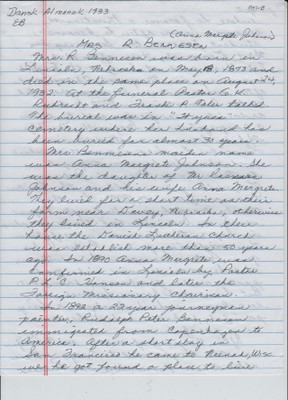 Dansk Almanak 1933
EB
(Anna Margrete Johnson)
Mrs R. Bennesen
Mrs. R. Bennesen was born in
Lincoln, Nebraska on May 18, 1873 and
died in the same place on August 24,
1932. At the funeral Pastor A. W.
and Frank A. talked.
The burial was in "Wyuka"
cemetery where her husband has
been buried for almost 30 years.
Mrs. Bennesen's maiden name
was Anna Margrete Johnson. She
was the daughter of Mr.
Johnson and his wife Anna Margrete.
They lived for a short time on their
farm near Davey, Nebraska, otherwise
they lived in Lincoln. In their
home the Danish Lutheran Church
was establish more than 50 years
ago. In 1890 Anna Margrete was
confirmed in Lincoln by Pastor
P. L. C. Hansen and later the
Foreign Missionary
In 1892 a 22 year journeyman
painter, Rudolph Peter Bennesen
immigrated from Copenhagen to
America. After a short stay in
San Francisco he came to Neenah, Wisc
where he got found a place to live